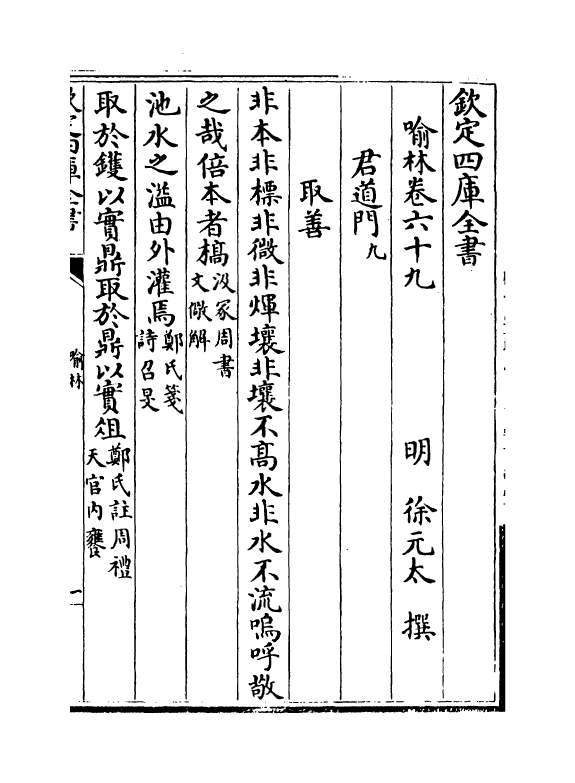 欽定四庫全書
喻林卷六十九　明　徐元太　撰
君道門九
取善
非本非標非微非煇壤非壤不高水非水不流嗚呼敬
之哉倍本者槁汲冢周書文儆解
池水之溢由外灌焉鄭氏箋詩召旻
取於鑊以實鼎取於鼎以實俎鄭氏註周禮天官內饔
欽定四庫全書
喻林
一